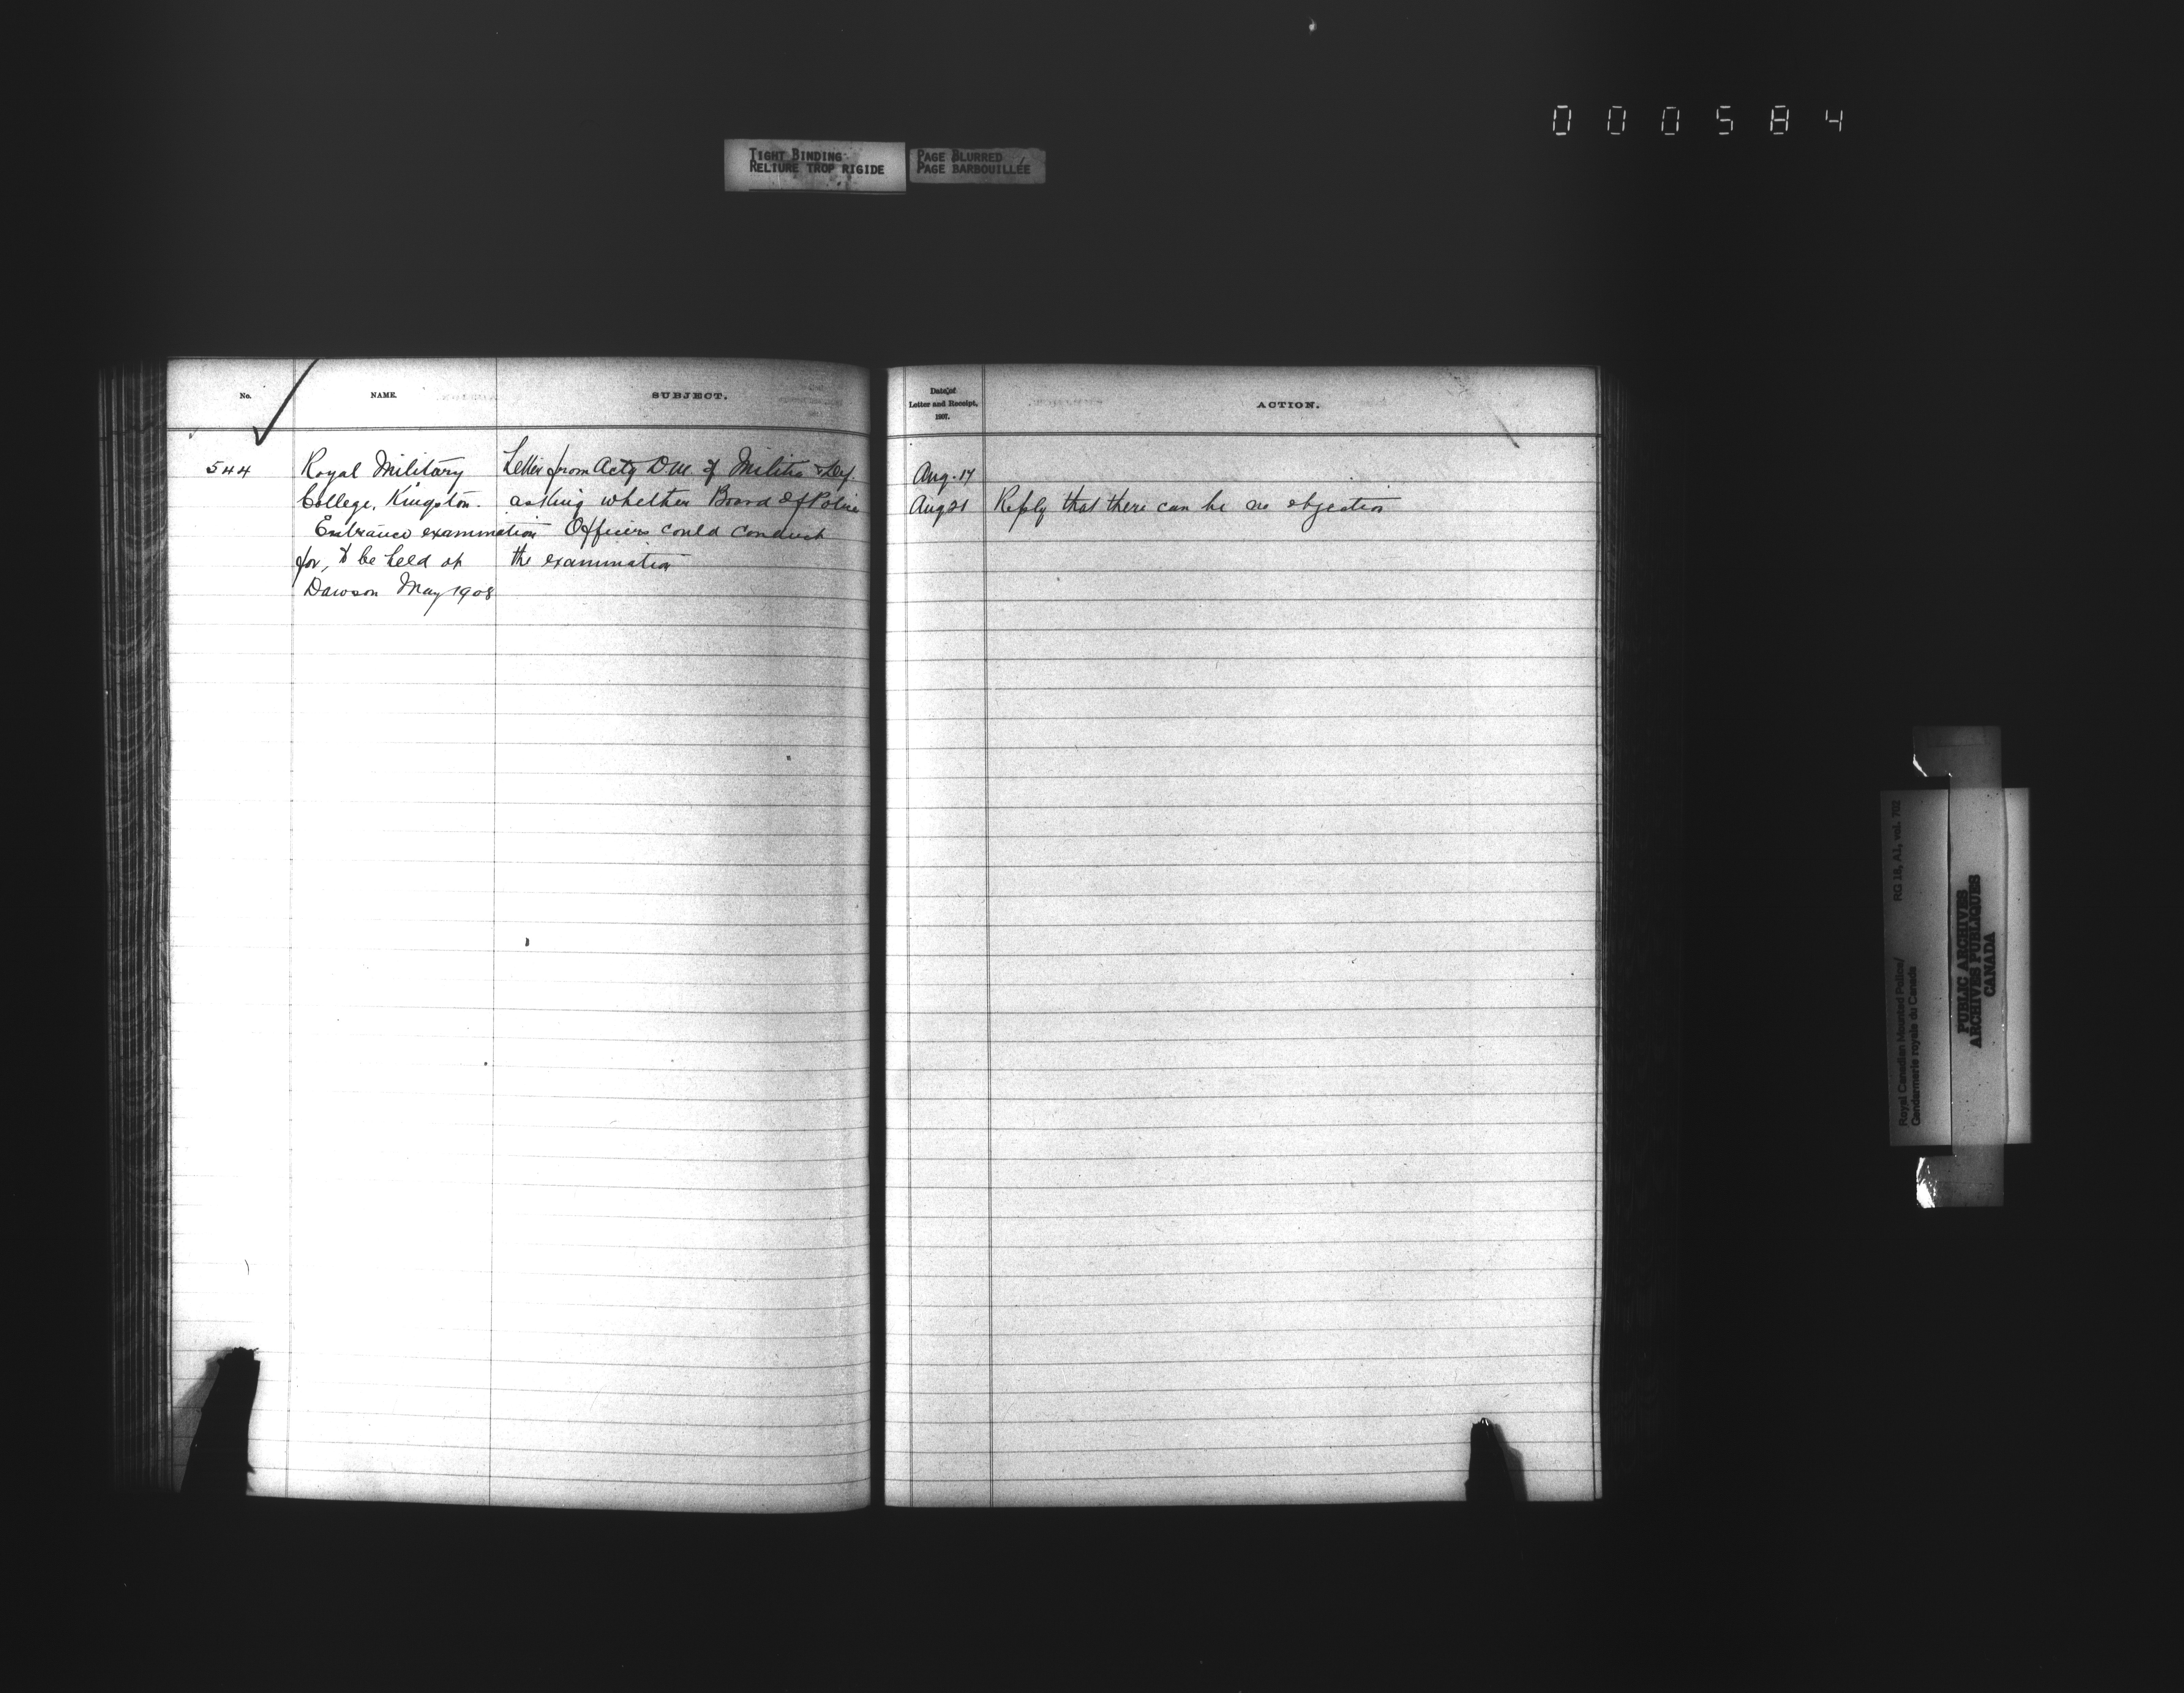 000584
TIGHT BINDING
RELIURE TROP RIGIDE
PAGE BLURRED
PAGE BARBOUILLÉE
No.
NAME.
SUBJECT.
Date of
Letter and Receipt,
1907.
ACTION.
544
Royal Military
College, Kingston.
Entrance examination
for, to be held at
Dawson May 1908
Letter from Actg D.M. of Militia & Def.
asking whether Board of Police
Officers could conduct
the examination
Aug. 17
Aug 21
Reply that there can be no objection
Royal Canadian Mounted Police/
Gendarmerie royale du Canada
RG 18, A1, vol. 702
PUBLIC ARCHIVES
ARCHIVES PUBLIQUES
CANADA